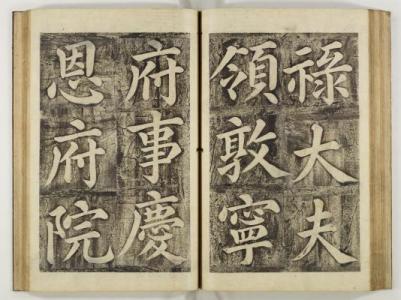 祿大夫
領敦寧
府事慶
恩府院